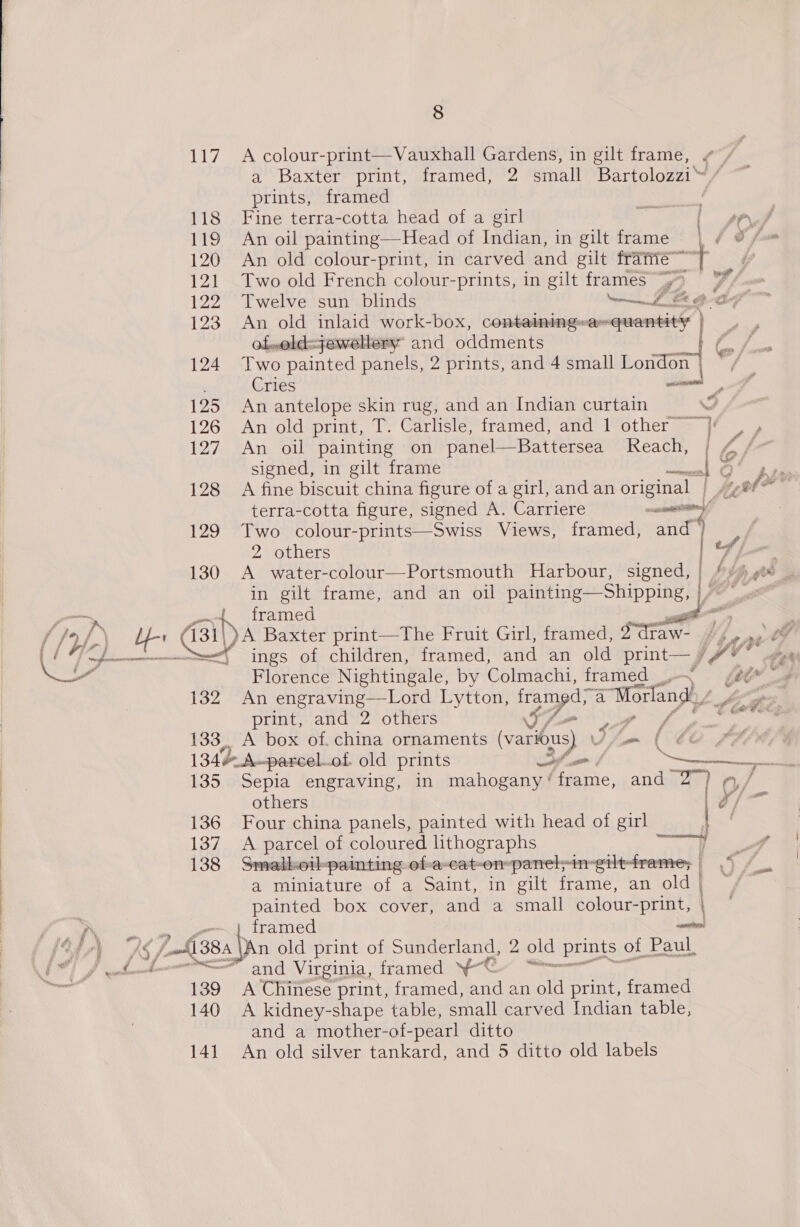 8
117 A colour-print—Vauxhall Gardens, in gilt frame,
a Baxter print, framed, 2 small Bartolozzi
prints, framed
118 Fine terra-cotta head of a girl
119 An oil painting—Head of Indian, in gilt frame
120 An old colour-print, in carved and gilt frame
121 Two old French colour-prints, in gilt frames
122 Twelve sun blinds
123 An old inlaid work-box, containing a quantity
of old jewellery and oddments
124 Two painted panels, 2 prints, and 4 small London
Cries
125 An antelope skin rug, and an Indian curtain
126 An old print, T. Carlisle, framed, and 1 other
127 An oil painting on panel—Battersea Reach,
signed, in gilt frame
128 A fine biscuit china figure of a girl, and an original
terra-cotta figure, signed A. Carriere
129 Two colour-prints—Swiss Views, framed, and
2 others
130 A water-colour—Portsmouth Harbour, signed,
in gilt frame, and an oil painting—Shipping,
framed
131 A Baxter print—The Fruit Girl, framed, 2 draw-
ings of children, framed, and an old print—
Florence Nightingale, by Colmachi, framed
132 An engraving—Lord Lytton, framed, a Morland
print, and 2 others
133 A box of china ornaments (various)
134 A parcel of old prints
135 Sepia engraving, in mahogany frame, and 2
others
136 Four china panels, painted with head of girl
137 A parcel of coloured lithographs
138 Small oil painting of a cat on panel, in gilt frame,
a miniature of a Saint, in gilt frame, an old
painted box cover, and a small colour-print,
framed
138A An old print of Sunderland, 2 old prints of Paul
and Virginia, framed
139 A Chinese print, framed, and an old print, framed
140 A kidney-shape table, small carved Indian table,
and a mother-of-pearl ditto
141 An old silver tankard, and 5 ditto old labels